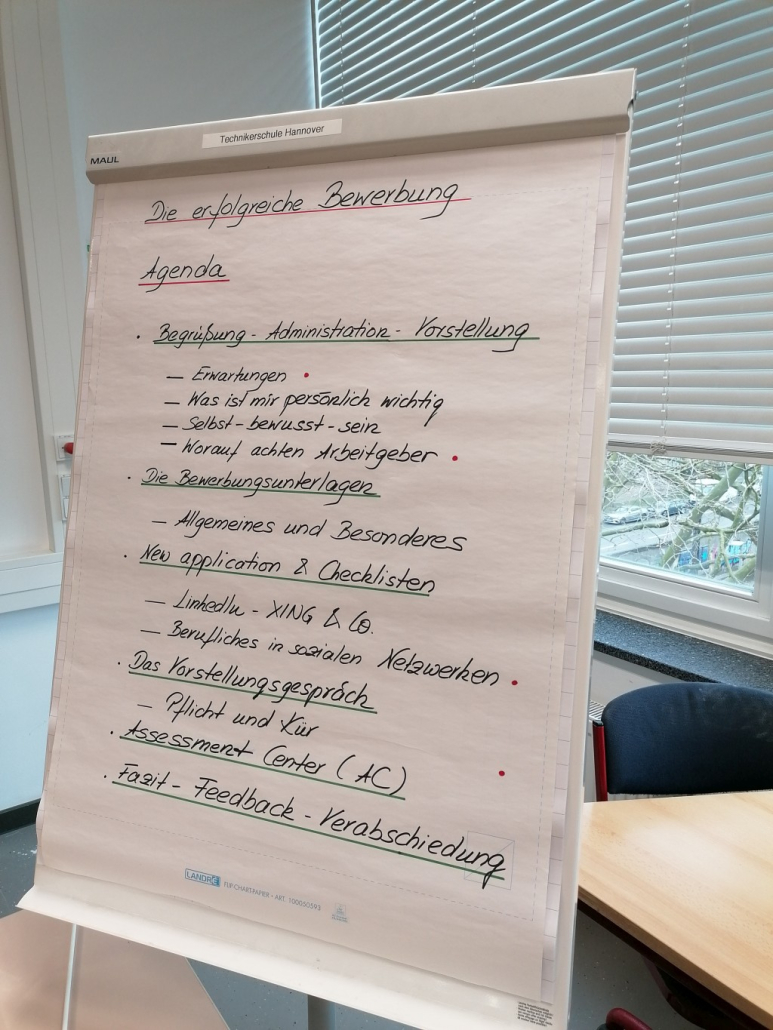 Technikerschule Hannover
MAUL
Die erfolgreiche Bewerbung
Agenda
· Begrüßung - Administration - Vorstellung
— Erwartungen
— Was ist mir persönlich wichtig
— Selbst-bewusst-sein
— Worauf achten Arbeitgeber
· Die Bewerbungsunterlagen
— Allgemeines und Besonderes
· New application & Checklisten
— LinkedIn - XING & Co.
— Berufliches in sozialen Netzwerken
· Das Vorstellungsgespräch
— Pflicht und Kür
· Assessment Center (AC)
· Fazit - Feedback - Verabschiedung
LANDRÉ FLIPCHARTPAPIER · ART. 100050595